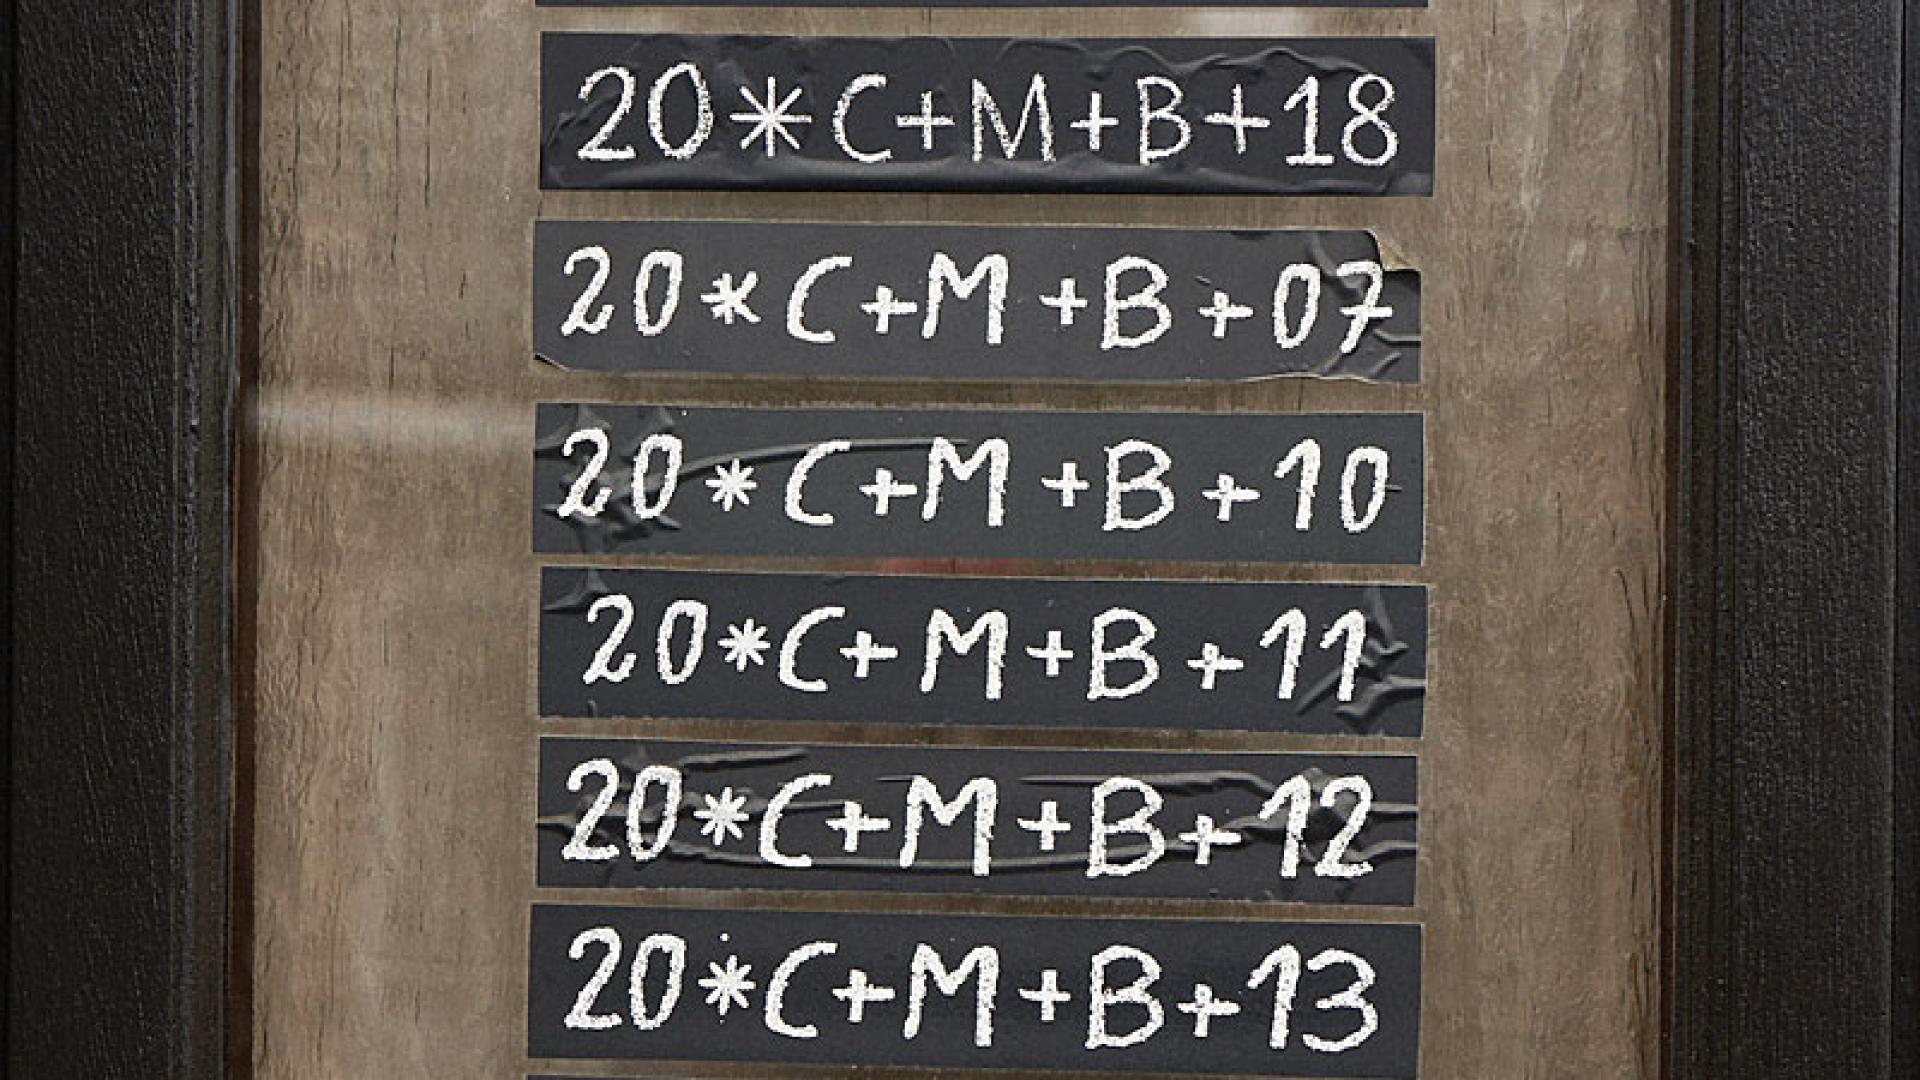 20*C+M+B+18
20*C+M+B+07
20*C+M+B+10
20*C+M+B+11
20*C+M+B+12
20*C+M+B+13